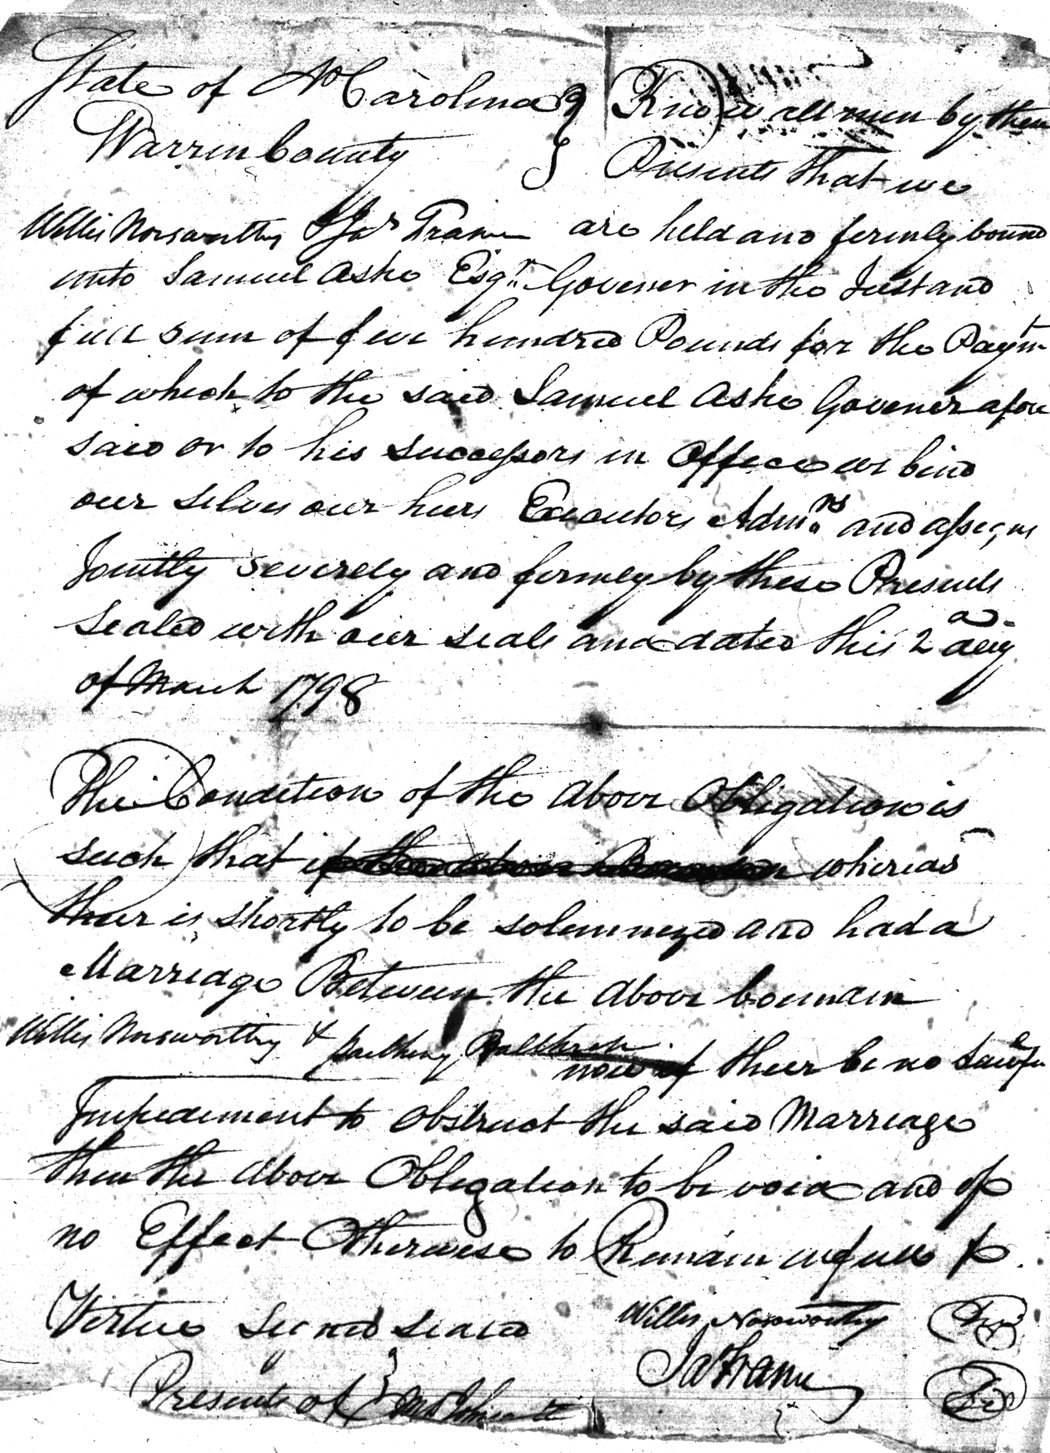 State of No Carolina } Know all men by these
Warren County } Presents that we
Willis Norsworthy & Jas are held and firmly bound
unto Samuel Ashe Esqr. Govener in the Just and
full sum of five hundred Pounds for the Paymt
of which to the said Samuel Ashe Govener afore
said or to his successors in office we bind
our selves our heirs Executors Admrs. and assigns
Jointly severely and firmly by these Presents
Sealed with our seals and dated this 2d day
of March 1798
The Condition of the above Obligation is
such that whereas
their is shortly to be solemnized and had a
Marriage Between the above bounden
Willis Norsworthy & now if their be no Lawfu
Impediment to obstruct the said Marriage
then the above Obligation to be void and of
no Effect Otherwise to Remain in full
Virtue Signed sealed Willis Norsworthy
Jas
Presents of }